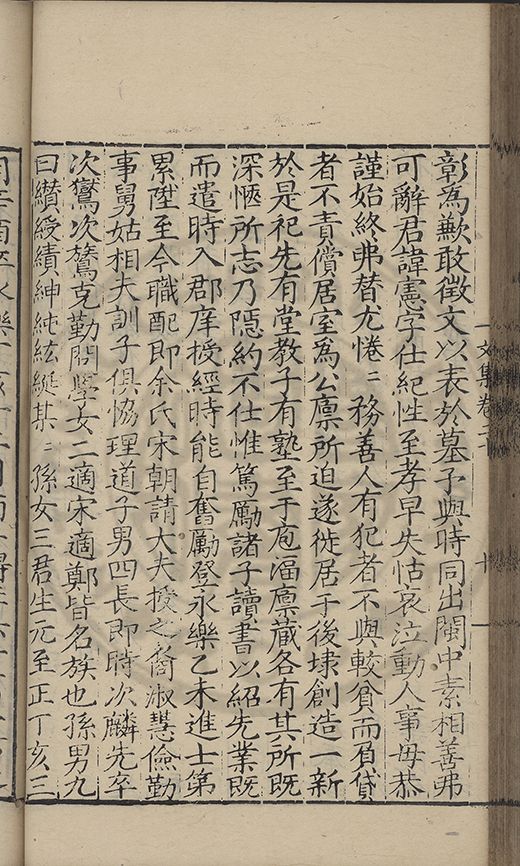 彰為歉敢徵文以表於墓予與時同出閩中素相善弗
可辭君諱憲字仕紀性至孝早失怙哀泣動人事母恭
謹始終弗替尤惓〻務善人有犯者不與較貧而負貸
者不責償居室為公廪所迫遂徙居于後埭創造一新
於是祀先有堂教子有塾至于庖湢廪藏各有其所既
深愜所志乃隱約不仕惟篤勵諸子讀書以紹先業既
而遣時入郡庠授經時能自奮勵登永樂乙未進士第
累陞至今職配即余氏宋朝請大夫授之裔淑慧儉勤
事舅姑相夫訓子俱恊理道子男四長即時次麟先卒
次鸞次騖克勤問學女二適宋適鄭皆名族也孫男九
曰纘綬績紳純紘綖其〻孫女三君生元至正丁亥三
文集卷二
十